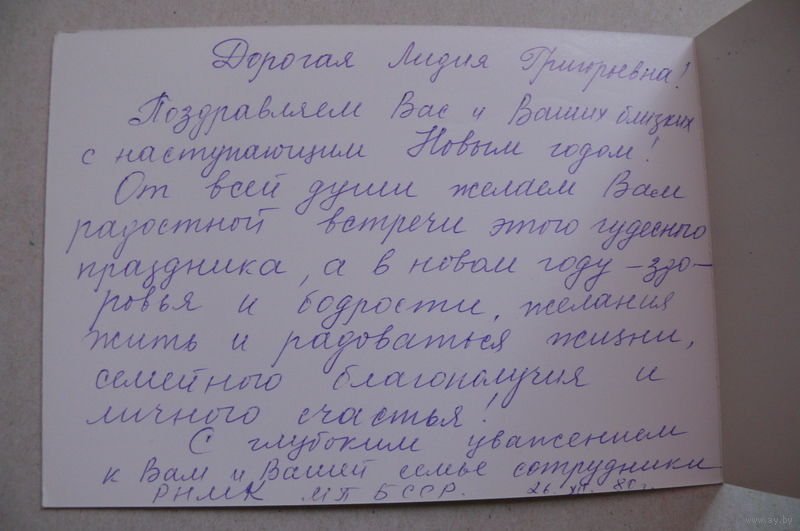 Дорогая Лидия Григорьевна!
Поздравляем Вас и Ваших близких
с наступающим Новым годом!
От всей души желаем Вам
радостной встречи этого чудесного
праздника, а в новом году – здо-
ровья и бодрости, желания
жить и радоваться жизни,
семейного благополучия и
личного счастья!
С глубоким уважением
к Вам и Вашей семье сотрудники
РНМК МП БССР. 26. XII.
www.ay.by